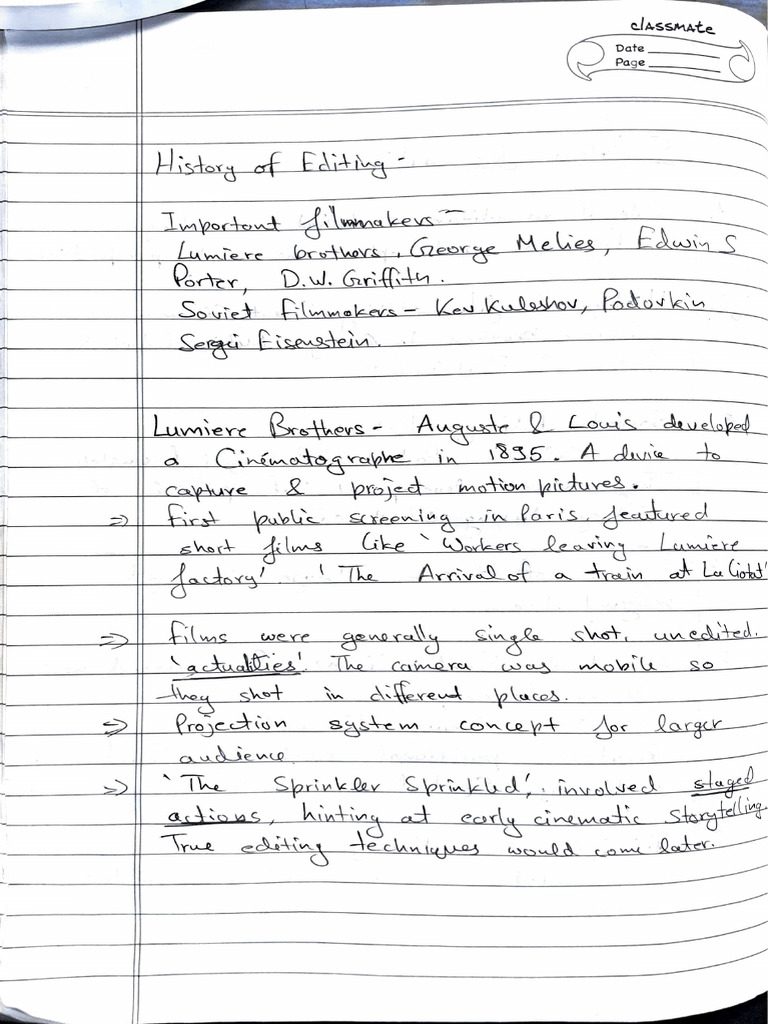 classmate
Date
Page
History of Editing -
Important filmmakers -
Lumiere brothers, George Melies, Edwin S
Porter, D.W. Griffith.
Soviet filmmakers - Kev Kuleshov, Podovkin
Sergei Eisenstein.
Lumiere Brothers - Auguste & Louis developed
a Cinématographe in 1895. A device to
capture & project motion pictures.
⇒ first public screening in Paris, featured
short films like 'Workers leaving Lumiere
factory' 'The Arrival of a train at La Ciotat'
⇒ films were generally single shot, unedited.
'actualities'. The camera was mobile so
they shot in different places.
⇒ Projection system concept for larger
audience.
⇒ 'The Sprinkler Sprinkled', involved staged
actions, hinting at early cinematic storytelling.
True editing techniques would come later.